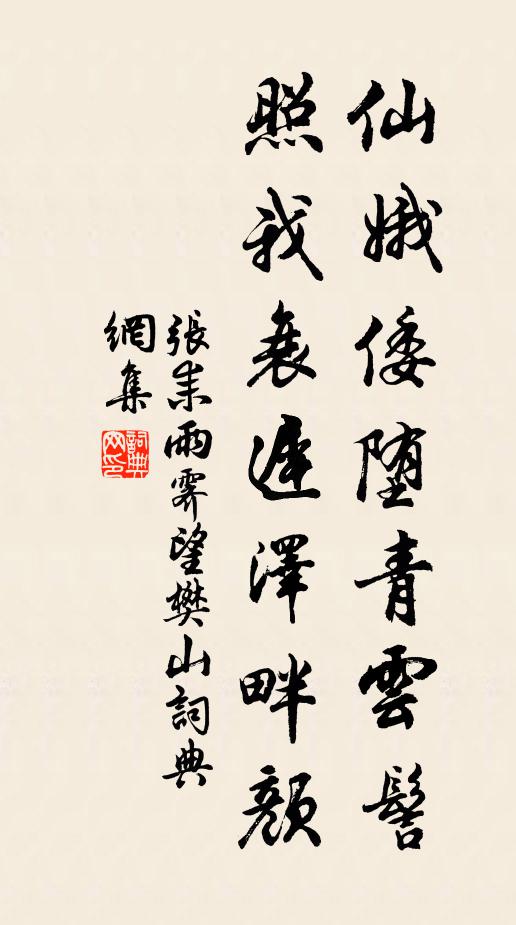 仙娥倭堕青雲髻
照我衰遲澤畔顔
張耒雨霽望樊山詞典
網集
詞典網印